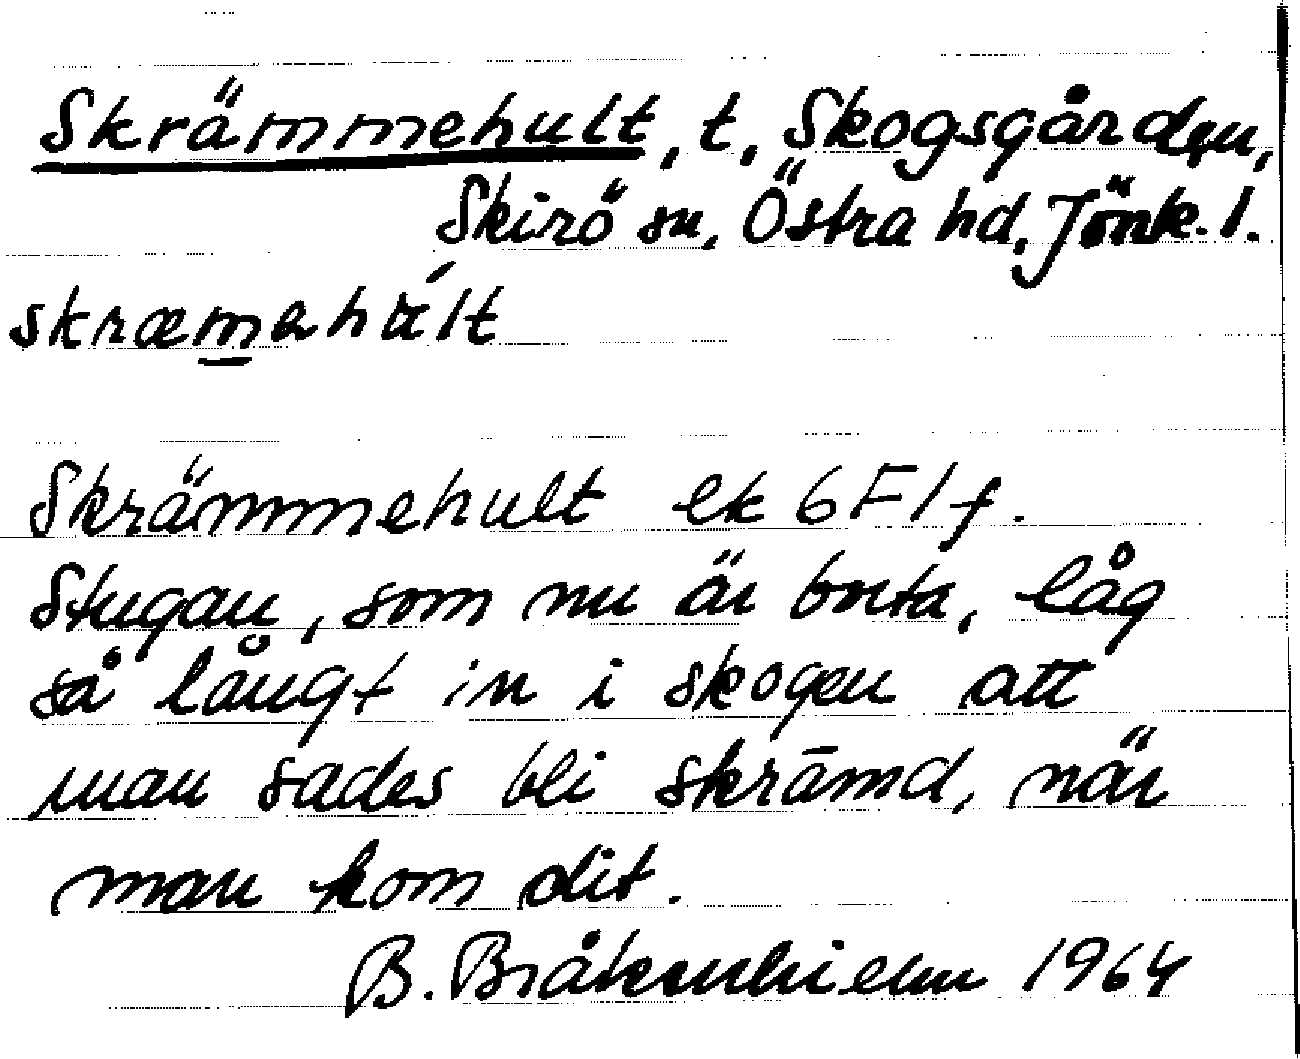 Skrämmehult, t, Skogsgården,
Skirö sn, Östra hd, Jönk. l.
skræmehúlt
Skrämmehult ek 6F1f.
Stugan, som nu är borta, låg
så långt in i skogen att
man sades bli skrämd, när
man kom dit.
B. Bråkenhielm 1964